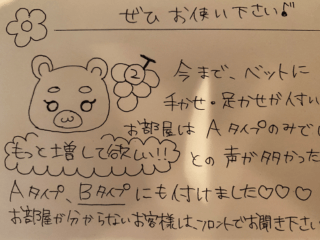 ぜひ お使い下さい♪
②
今まで、ベットに
手かせ・足かせが付い
お部屋は Aタイプのみでし
もっと増して欲しい!!
との声が多かった
Aタイプ、Bタイプにも付けました♡♡♡
お部屋が分からないお客様は、フロントでお聞き下さい